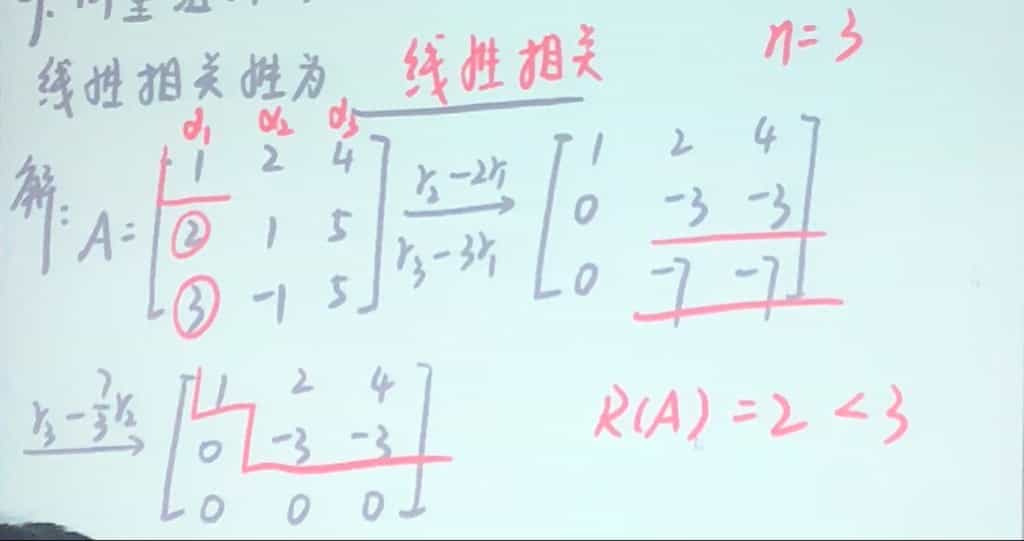 线性相关性为 线性相关 n=3
α₁ α₂ α₃
解: A= [1 2 4; 2 1 5; 3 -1 5] r₂-2r₁ r₃-3r₁ → [1 2 4; 0 -3 -3; 0 -7 -7]
r₃-7/3r₂ → [1 2 4; 0 -3 -3; 0 0 0] R(A)=2<3